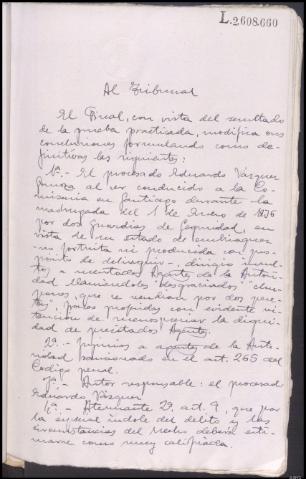 L.2.608.660
Al Tribunal
El Fiscal, con vista del resultado
de la prueba practicada, modifica sus
conclusiones formulando como de-
finitivas las siguientes:
1ª.- El procesado Eduardo Vázquez
al ser conducido a la Co-
misaria en Santiago durante la
madrugada del 1º de Enero de 1936
por dos Guardias de Seguridad, en
vista de su estado de embriaguez
no fortuita ni producida con pro-
pósito de delinquir - dirigió
a mentados Agentes de la Autori-
dad llamándoles "desgraciados"
que se vendían por dos pese-
tas, frases proferidas con evidente in-
tención de menospreciar la digni-
dad de precitados Agentes.
2ª.- injurias a agente de la Auto-
ridad sancionado en el art. 265 del
Código penal.
3ª.- Autor responsable: el procesado
Eduardo Vázquez
4ª.- Atenuante 2ª. art. 9, que por
la especial índole del delito y las
circunstancias del hecho deberá esti-
marse como muy calificada.